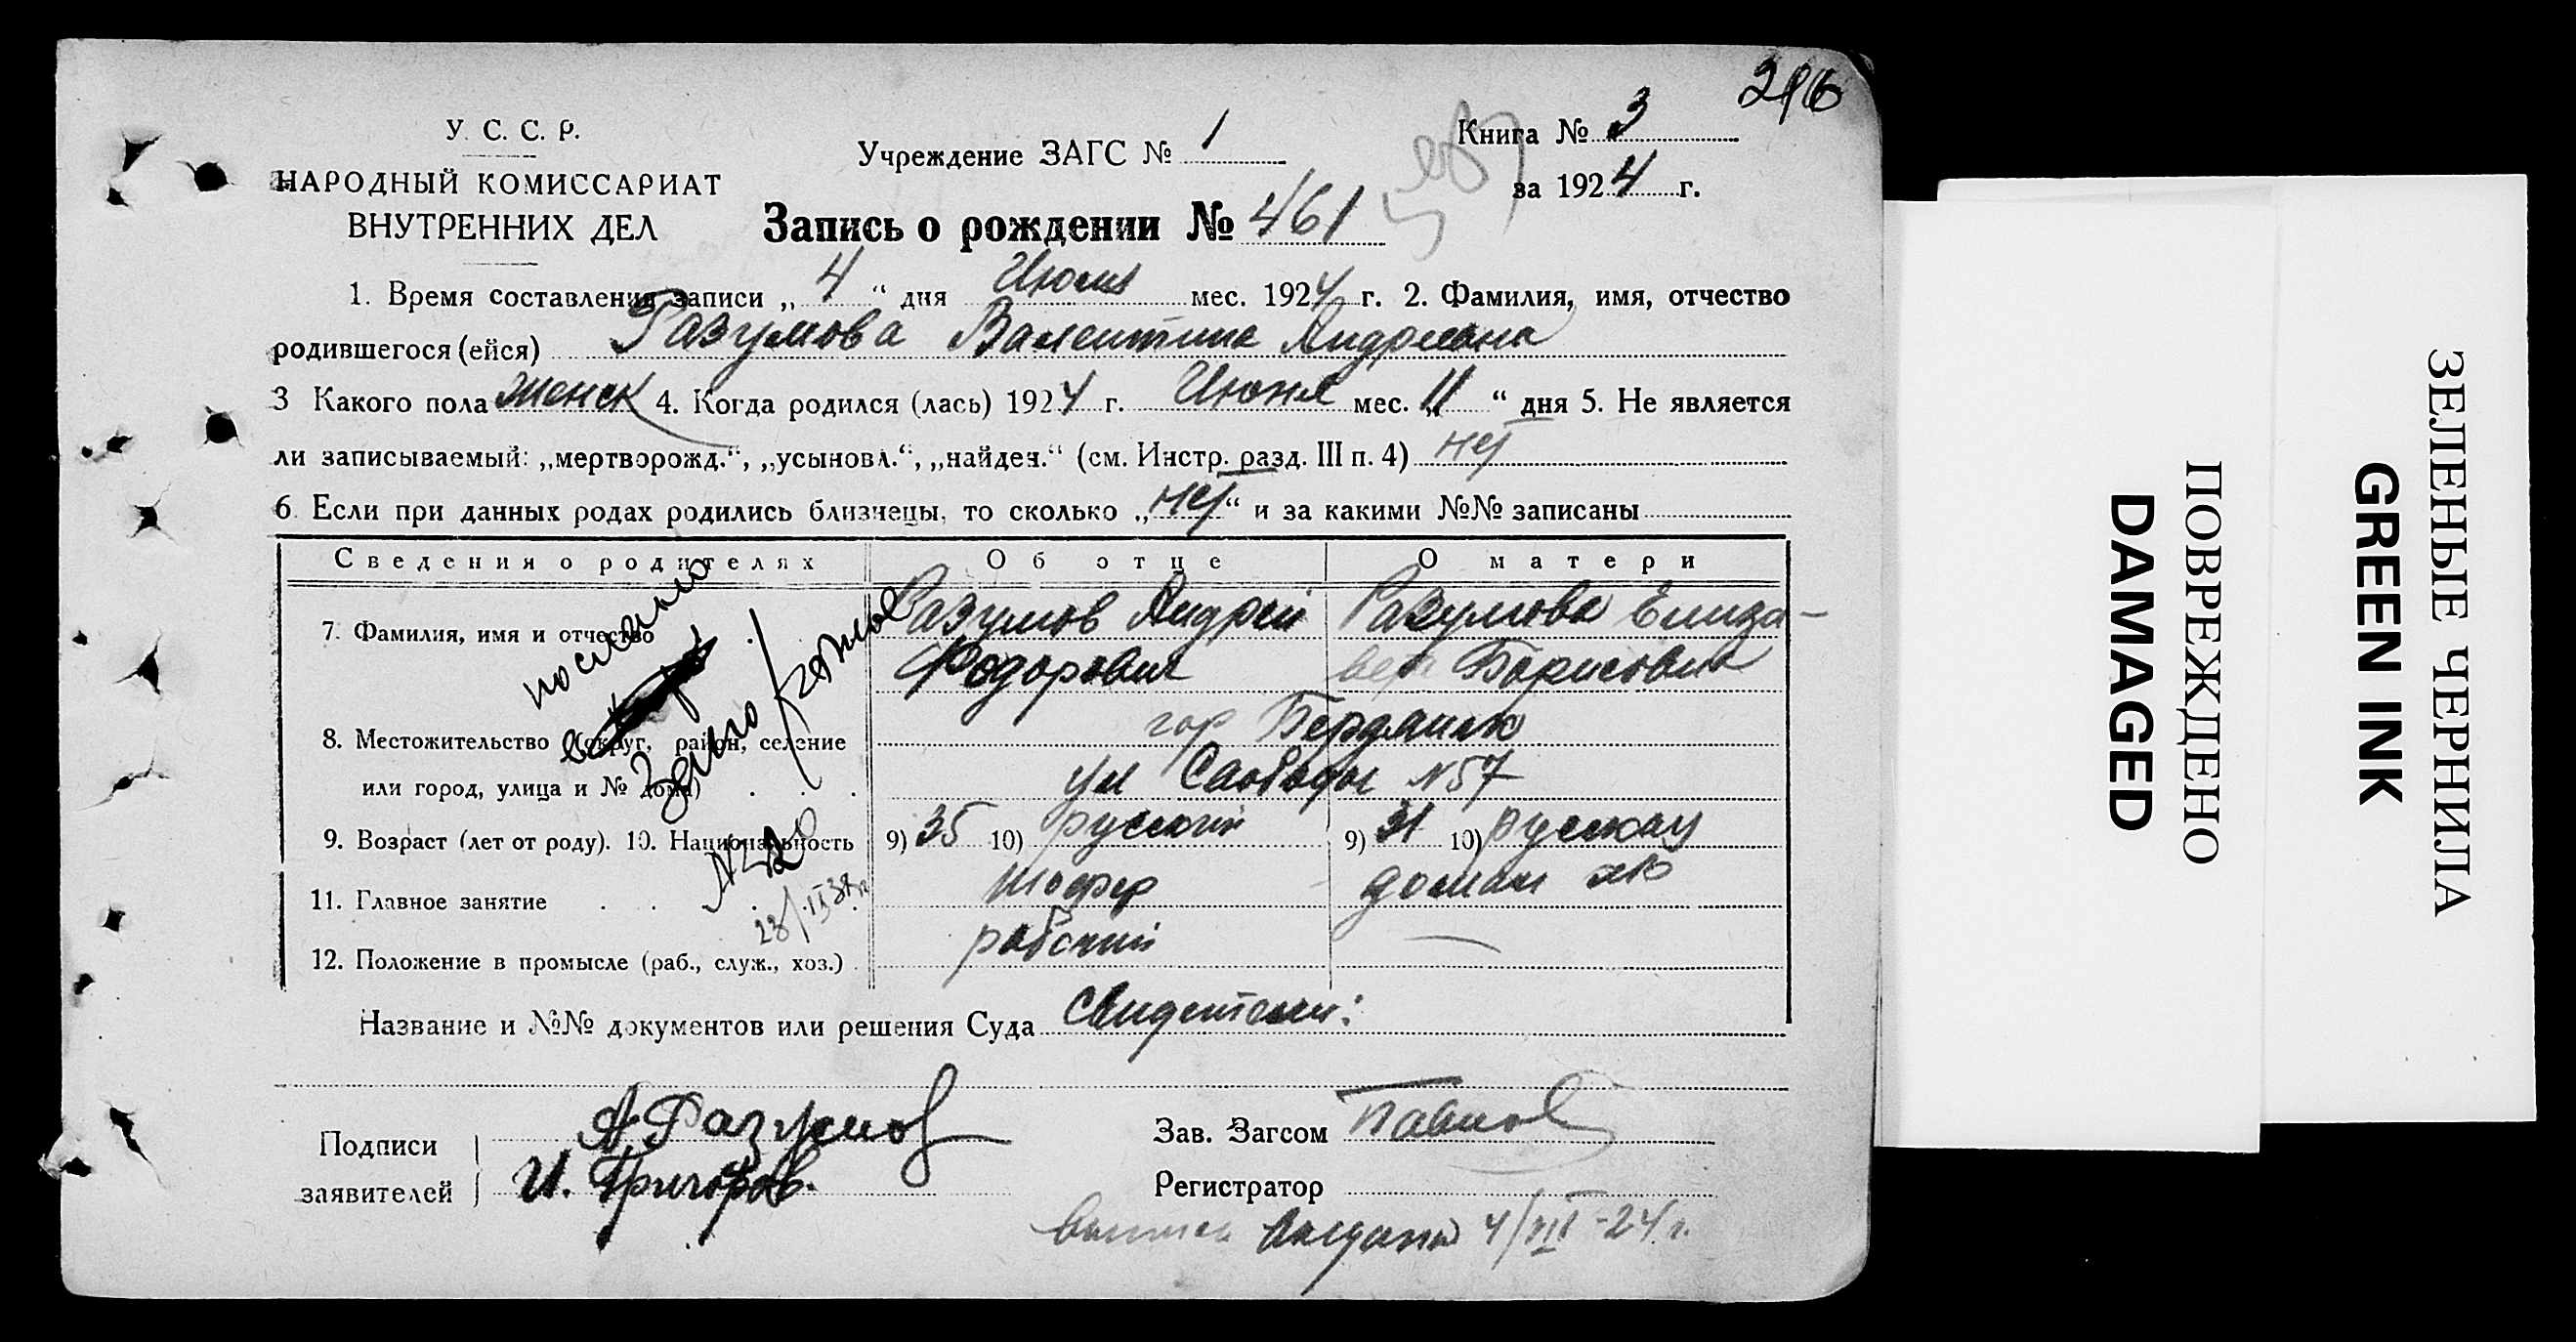 296
У. С. С. Р.
НАРОДНЫЙ КОМИССАРИАТ
ВНУТРЕННИХ ДЕЛ
Учреждение ЗАГС № 1
Книга № 3
за 1924 г.
Запись о рождении № 461
1. Время составления записи „ 4 “ дня Июля мес. 1924 г. 2. Фамилия, имя, отчество
родившегося (ейся) Разумова Валентина
3 Какого пола женск 4. Когда родился (лась) 1924 г. Июня мес. „11 “ дня 5. Не является
ли записываемый: „мертворожд.“, „усыновл.“, „найден.“ (см. Инстр. разд. III п. 4) нет
6. Если при данных родах родились близнецы, то сколько „нет“ и за какими №№ записаны
Сведения о родителях Об отце О матери
7. Фамилия, имя и отчество Разумов Андрей Разумова Елиза-
Федорович вет Борисовна
8. Местожительство (округ, район, селение гор Бердянск
или город, улица и № дома) ул Свободы N 57
9. Возраст (лет от роду). 10. Национальность 9) 35 10) русский 9) 31 10) русская
11. Главное занятие шофер домаш хо
12. Положение в промысле (раб., служ., хоз.) рабочий —
послано
Загс
Название и №№ документов или решения Суда Свидетели:
Подписи
заявителей
А. Разумов
И. Григоров.
Зав. Загсом Павлов
Регистратор
выдана 4/VII-24 г.
ПОВРЕЖДЕНО
DAMAGED
ЗЕЛЕНЫЕ ЧЕРНИЛА
GREEN INK